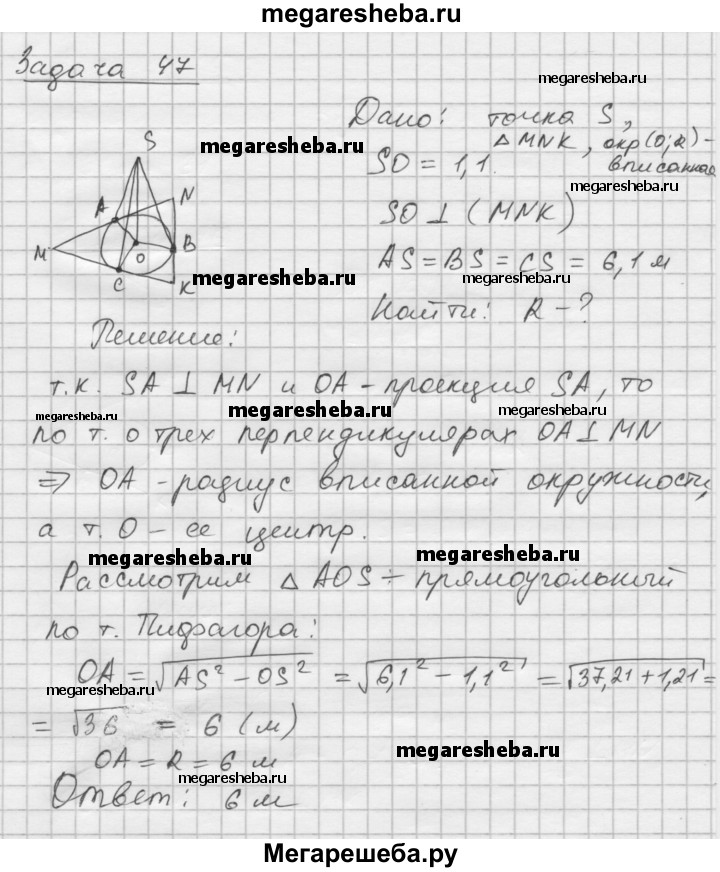 megaresheba.ru
Задача 47
megaresheba.ru
Дано: точка S,
megaresheba.ru
△ MNK, окр(O;R) -
вписанная
SO = 1,1.
megaresheba.ru
S
A
N
M
O
B
C
K
SO ⊥ (MNK)
AS = BS = CS = 6,1 м
megaresheba.ru
megaresheba.ru
Найти: R - ?
Решение:
т.к. SA ⊥ MN и OA - проекция SA, то
megaresheba.ru megaresheba.ru megaresheba.ru
по т. о трех перпендикулярах OA ⊥ MN
⇒ OA - радиус вписанной окружности,
а т. O - ее центр.
megaresheba.ru megaresheba.ru
Рассмотрим △ AOS - прямоугольный
по т. Пифагора:
OA = √AS² - OS² = √6,1² - 1,1² = √37,21 + 1,21 =
megaresheba.ru
= √36 = 6 (м)
OA = R = 6 м
megaresheba.ru
megaresheba.ru
Ответ: 6 м
Мегарешеба.ру